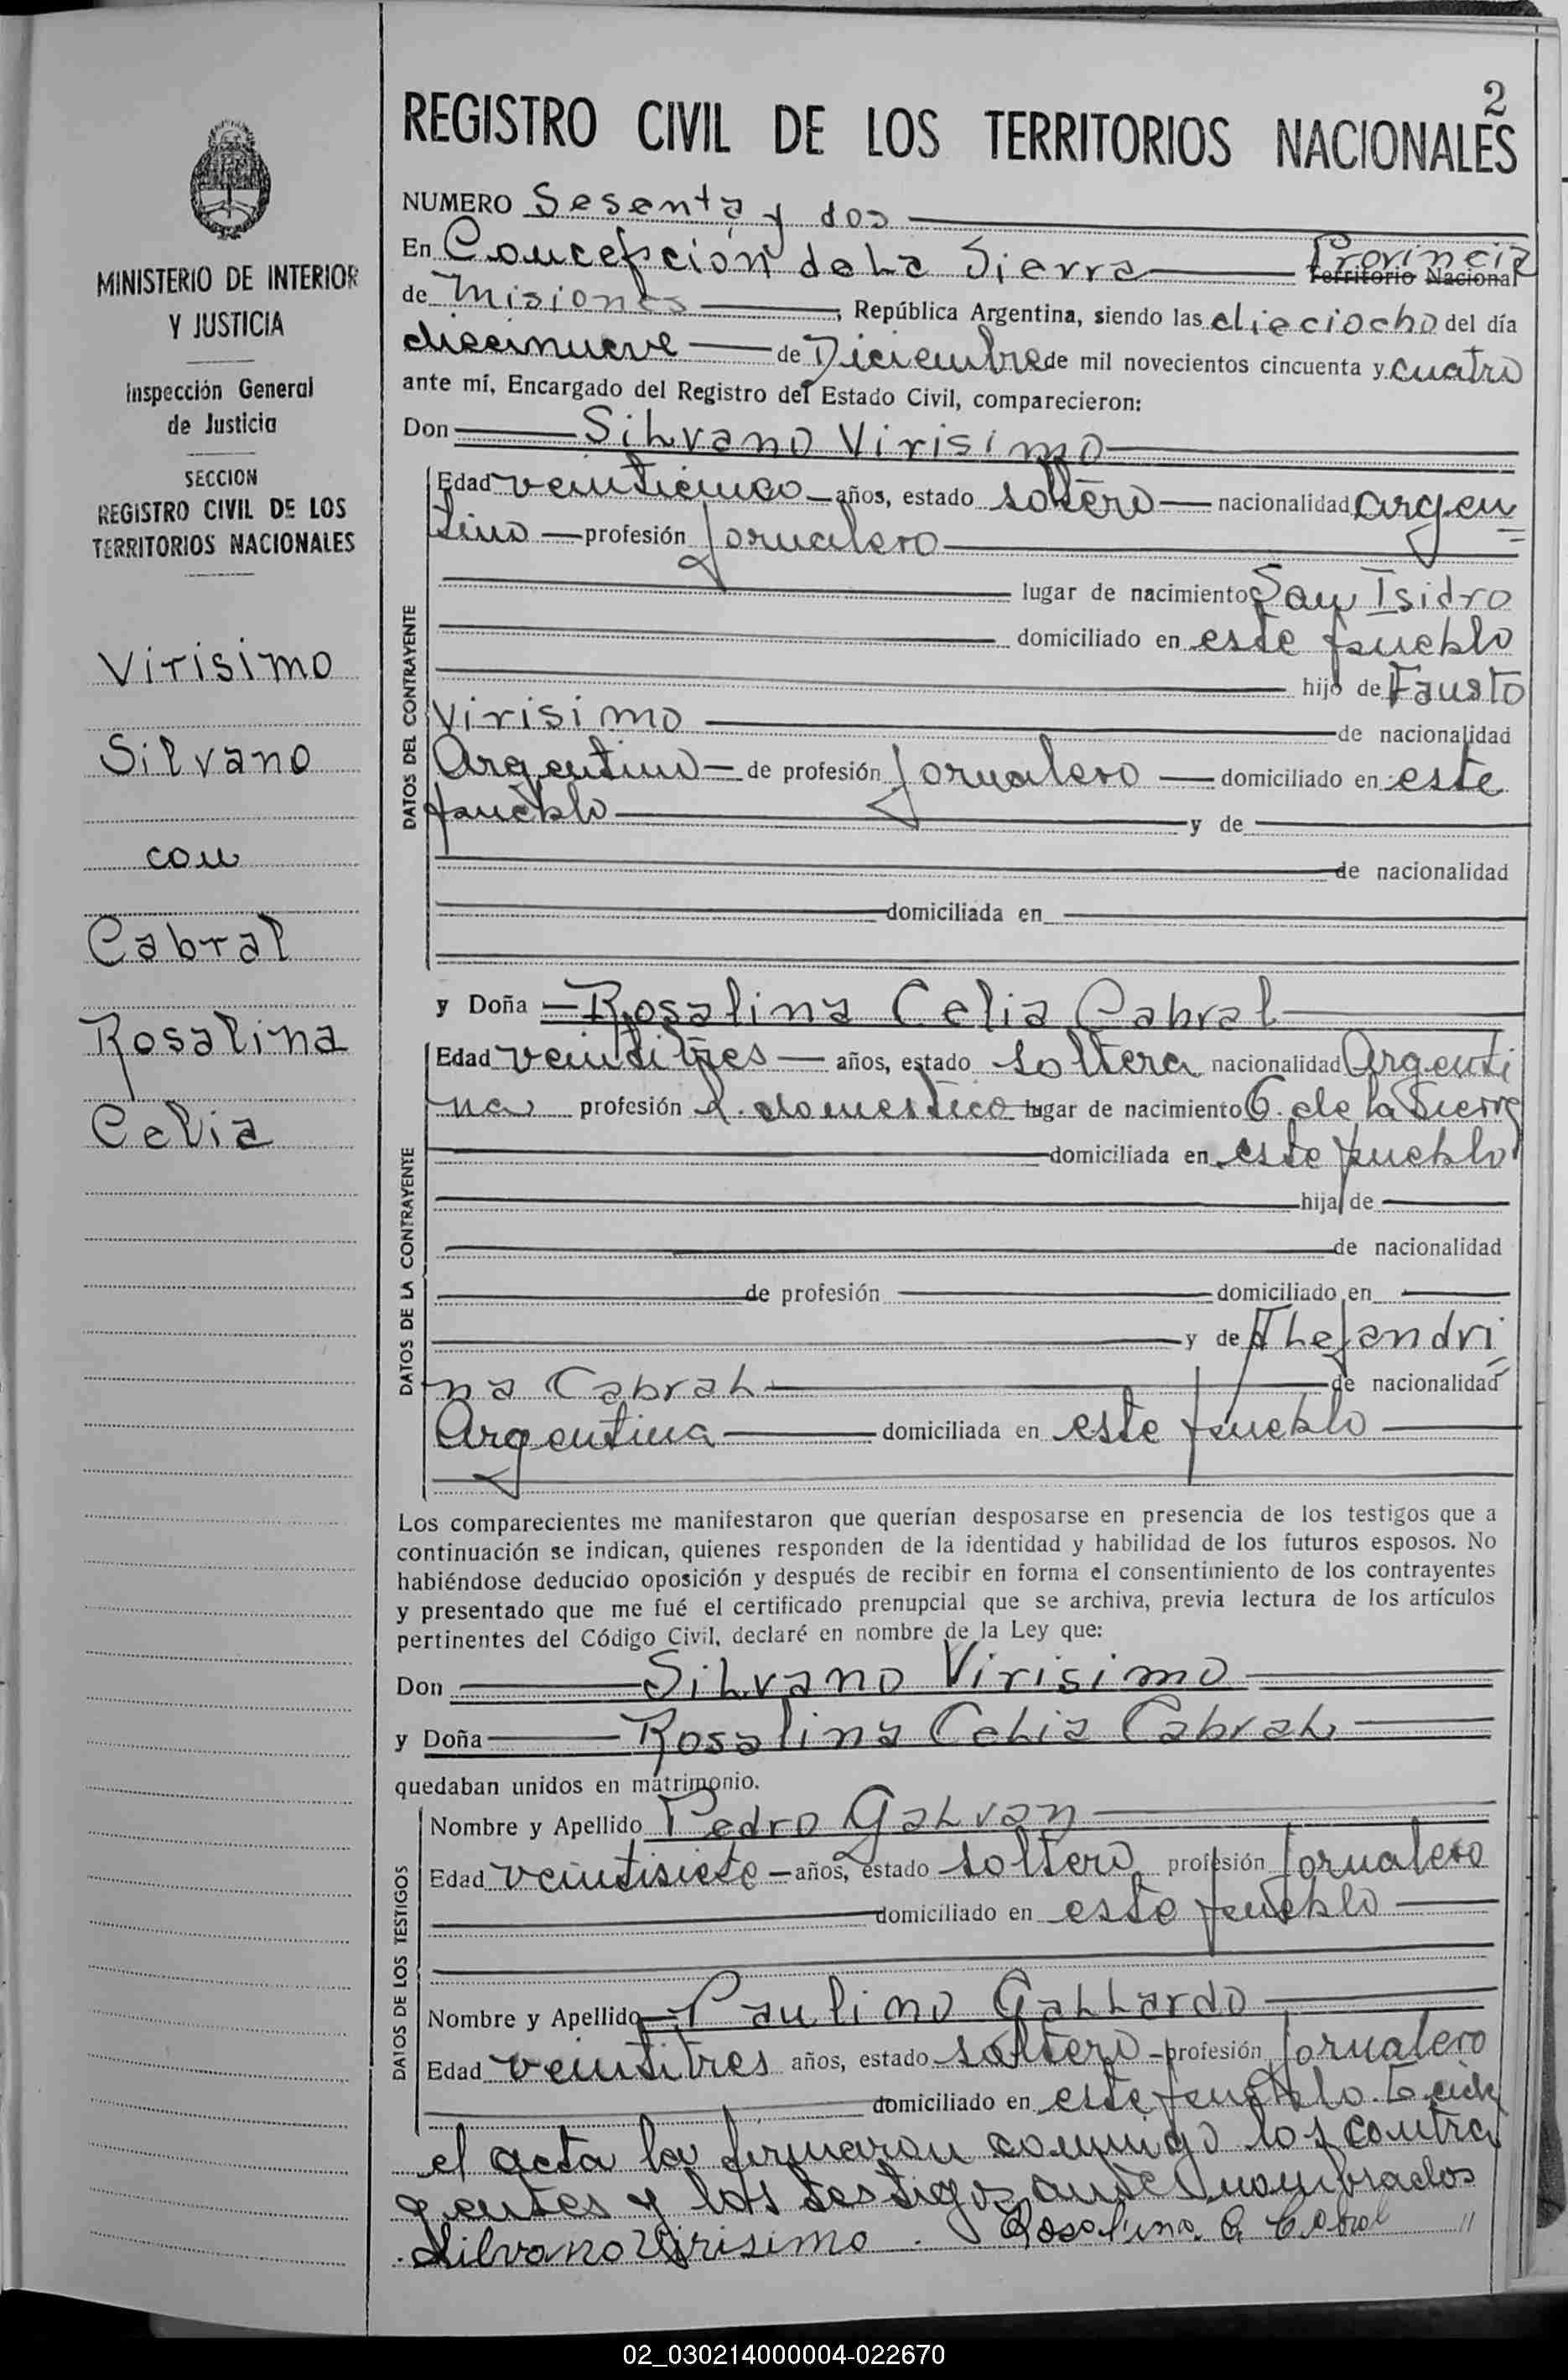 2
REGISTRO CIVIL DE LOS TERRITORIOS NACIONALES
MINISTERIO DE INTERIOR
Y JUSTICIA
Inspección General
de Justicia
SECCION
REGISTRO CIVIL DE LOS
TERRITORIOS NACIONALES
Virisimo
Silvano
con
Cabral
Rosalina
Celia
NUMERO Sesenta y dos
En Concepción de La Sierra Provincia Territorio Nacional
de Misiones, República Argentina, siendo las dieciocho del día
diecinueve de Diciembre de mil novecientos cincuenta y cuatro
ante mí, Encargado del Registro del Estado Civil, comparecieron:
Don Silvano Virisimo
DATOS DEL CONTRAYENTE
Edad veinticinco años, estado soltero nacionalidad argen
tino profesión Jornalero
lugar de nacimiento San Isidro
domiciliado en este pueblo
hijo de Fausto
Virisimo de nacionalidad
Argentino de profesión Jornalero domiciliado en este
pueblo y de
de nacionalidad
domiciliada en
y Doña Rosalina Celia Cabral
DATOS DE LA CONTRAYENTE
Edad veintitres años, estado soltera nacionalidad Argenti
na profesión q. domestico lugar de nacimiento C. de la Sierra
domiciliada en este pueblo
hija de
de nacionalidad
de profesión domiciliado en
y de Alejandri
na Cabral de nacionalidad
Argentina domiciliada en este pueblo
Los comparecientes me manifestaron que querían desposarse en presencia de los testigos que a
continuación se indican, quienes responden de la identidad y habilidad de los futuros esposos. No
habiéndose deducido oposición y después de recibir en forma el consentimiento de los contrayentes
y presentado que me fué el certificado prenupcial que se archiva, previa lectura de los artículos
pertinentes del Código Civil, declaré en nombre de la Ley que:
Don Silvano Virisimo
y Doña Rosalina Celia Cabral
quedaban unidos en matrimonio.
DATOS DE LOS TESTIGOS
Nombre y Apellido Pedro Galvan
Edad veintisiete años, estado soltero profesión Jornalero
domiciliado en este pueblo
Nombre y Apellido Paulino Gallardo
Edad veintitres años, estado soltero profesión Jornalero
domiciliado en este pueblo. Leida
el acta la firmaron conmigo los contra
yentes y los testigos ante nombrados
Silvano Virisimo. Rosalina C. Cabral
02_030214000004-022670